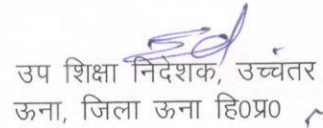 उप शिक्षा निदेशक, उच्चतर
ऊना, जिला ऊना हि०प्र०